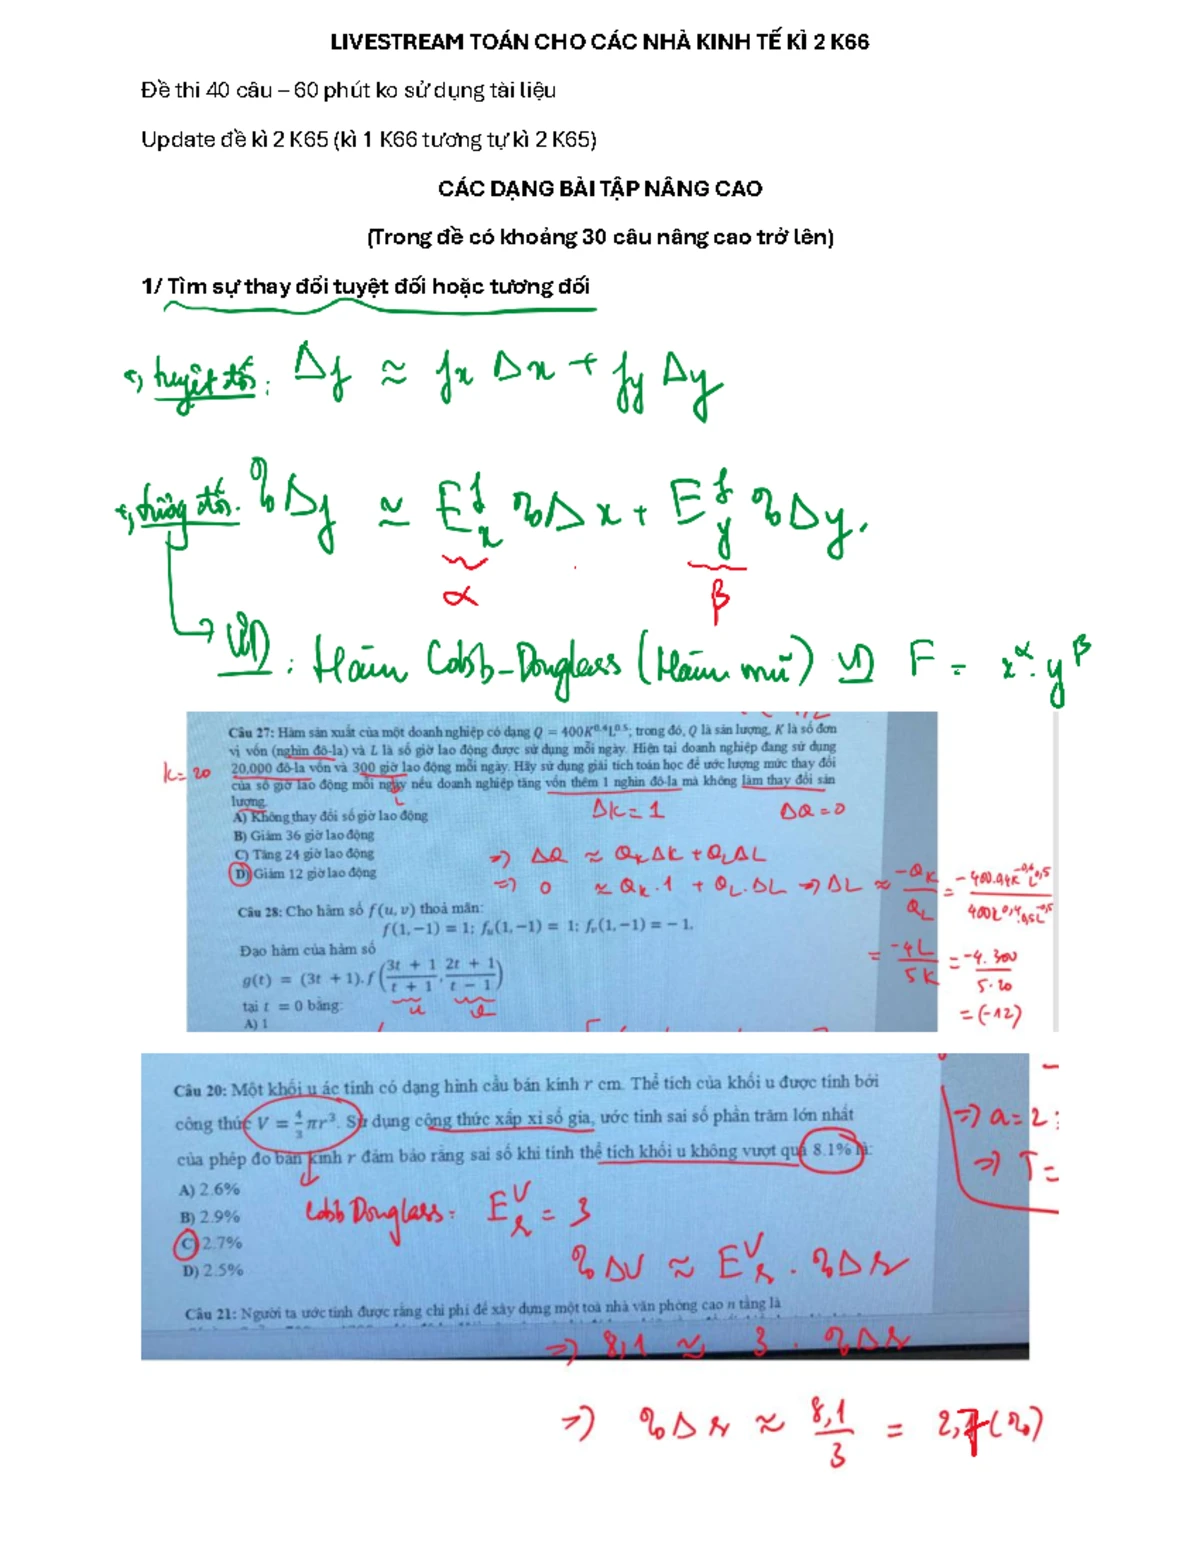 LIVESTREAM TOÁN CHO CÁC NHÀ KINH TẾ KÌ 2 K66
Đề thi 40 câu – 60 phút ko sử dụng tài liệu
Update đề kì 2 K65 (kì 1 K66 tương tự kì 2 K65)
CÁC DẠNG BÀI TẬP NÂNG CAO
(Trong đề có khoảng 30 câu nâng cao trở lên)
1/ Tìm sự thay đổi tuyệt đối hoặc tương đối
tuyệt đối: Δf ≈ fx Δx + fy Δy
tương đối: %Δf ≈ E^f_x %Δx + E^f_y %Δy.
α β
VD: Hàm Cobb-Douglass (Hàm mũ) VD F = x^α.y^β
Câu 27: Hàm sản xuất của một doanh nghiệp có dạng Q = 400K^0.4L^0.5, trong đó, Q là sản lượng, K là số đơn
vị vốn (nghìn đô-la) và L là số giờ lao động được sử dụng mỗi ngày. Hiện tại doanh nghiệp đang sử dụng
K=20 20,000 đô-la vốn và 300 giờ lao động mỗi ngày. Hãy sử dụng giải tích toán học để ước lượng mức thay đổi
của số giờ lao động mỗi ngày nếu doanh nghiệp tăng vốn thêm 1 nghìn đô-la mà không làm thay đổi sản
lượng.
L ΔK = 1 ΔQ = 0
A) Không thay đổi số giờ lao động
B) Giảm 36 giờ lao động
C) Tăng 24 giờ lao động
D) Giảm 12 giờ lao động
=> ΔQ ≈ QK ΔK + QL ΔL
=> 0 ≈ QK.1 + QL.ΔL => ΔL ≈ -QK/QL = -400.0,4K^-0,6 L^0,5 / 400K^0,4.0,5L^-0,5
= -4L/5K = -4.300/5.20
= (-12)
Câu 28: Cho hàm số f(u, v) thoả mãn:
f(1, −1) = 1; fu(1, −1) = 1; fv(1, −1) = − 1.
Đạo hàm của hàm số
g(t) = (3t + 1).f((3t + 1)/(t + 1), (2t + 1)/(t − 1))
u v
tại t = 0 bằng:
A) 1
Câu 20: Một khối u ác tính có dạng hình cầu bán kính r cm. Thể tích của khối u được tính bởi
công thức V = 4/3 πr³. Sử dụng công thức xấp xỉ số gia, ước tính sai số phần trăm lớn nhất
của phép đo bán kính r đảm bảo rằng sai số khi tính thể tích khối u không vượt quá 8.1% là:
=> a = 2
=> T =
A) 2.6%
B) 2.9%
C) 2.7%
D) 2.5%
Cobb Douglass: E^V_r = 3
%ΔV ≈ E^V_r . %Δr
Câu 21: Người ta ước tính được rằng chi phí để xây dựng một toà nhà văn phòng cao n tầng là
=> 8,1 ≈ 3 . %Δr
=> %Δr ≈ 8,1/3 = 2,7(%)